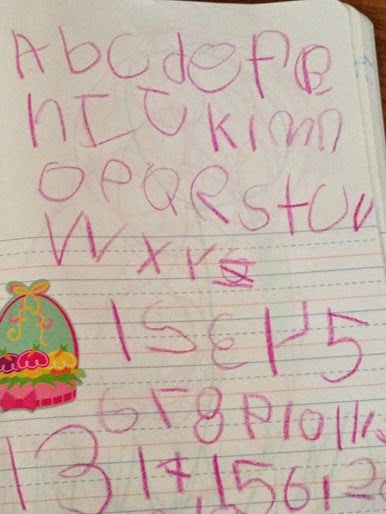 A b C d e f g
h I J k l m n
O P Q R S t U v
W X Y Z
1 2 3 4 5
6 7 8 9 10 11 12
13 14 15 6 12